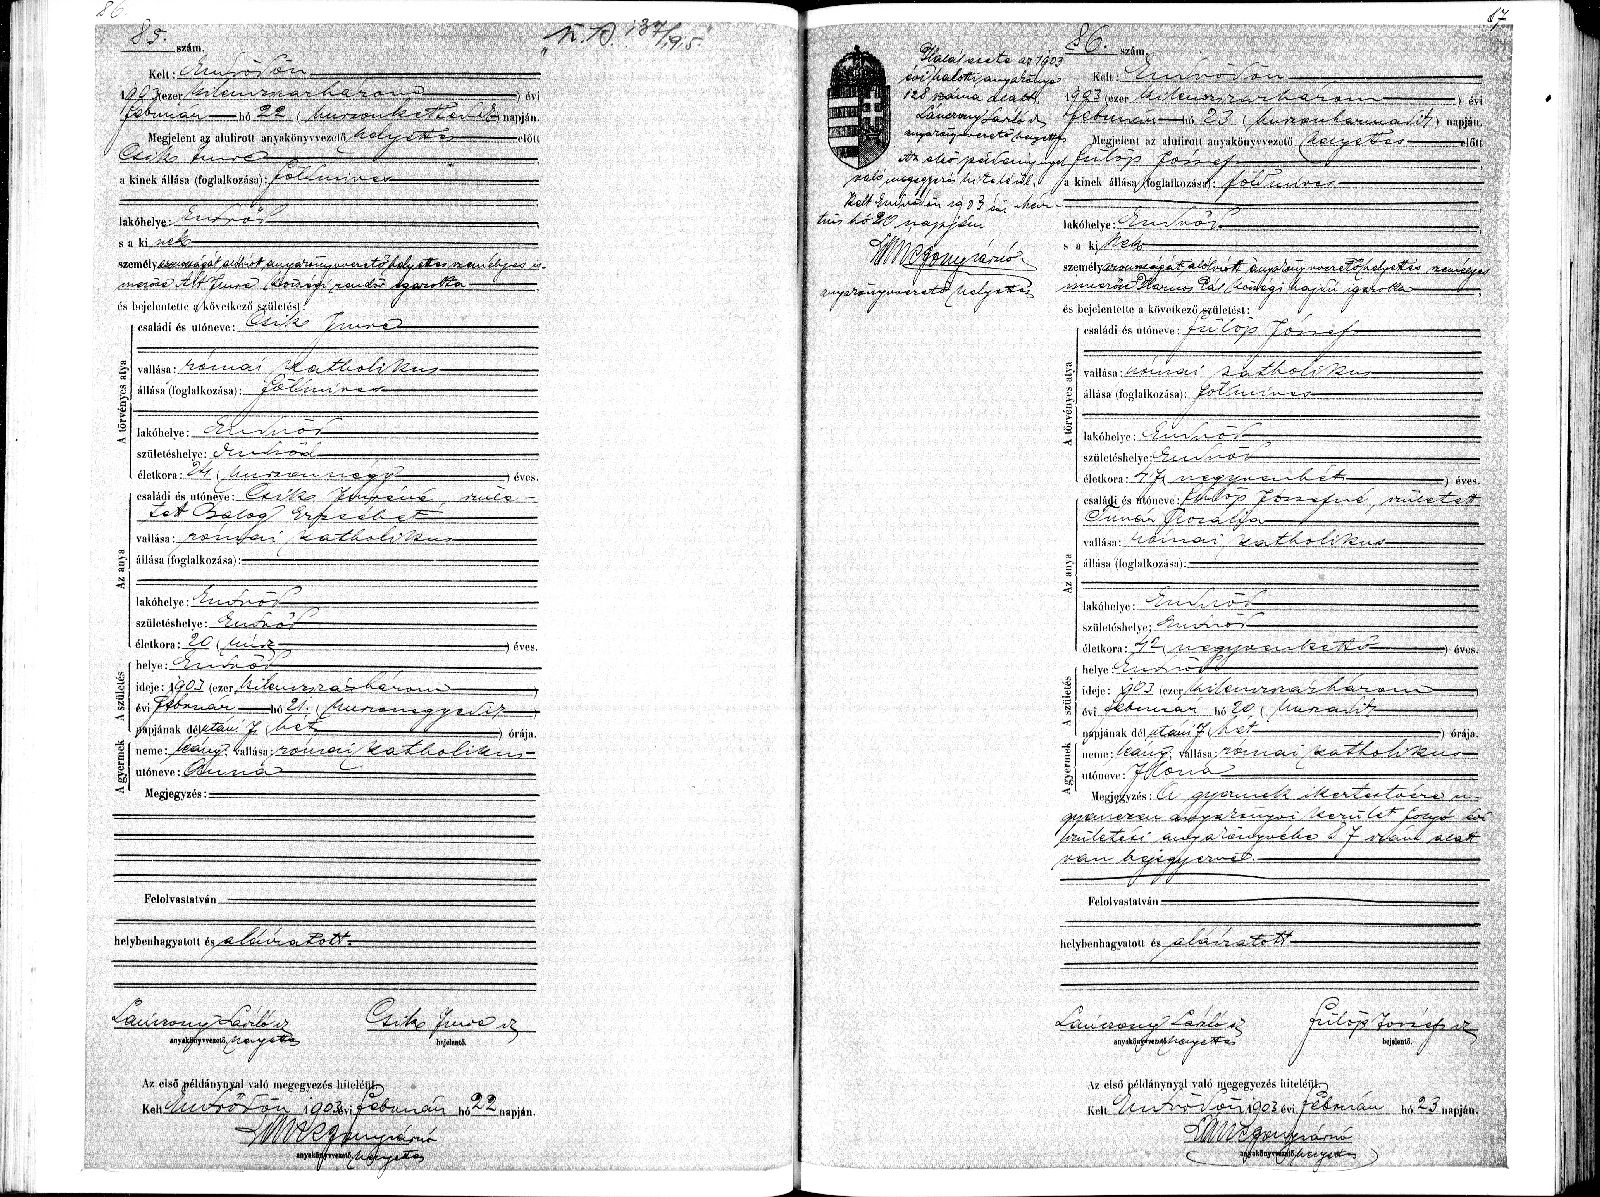 86
85. szám.
Kelt: Endrődön
1903 (ezer kilenczszázhárom) évi
február hó 22 (huszonkettedik) napján.
Megjelent az alulirott anyakönyvvezető helyettes előtt
Csik Imre
a kinek állása (foglalkozása): földmives
lakóhelye: Endrőd
s a ki nek
személyazonosságát alólirott anyakönyvvezető helyettes személyes is-
merőse Alt Imre községi rendőr igazolta
és bejelentette a következő születést:
A törvényes atya
családi és utóneve: Csik Imre
vallása: római katholikus
állása (foglalkozása): földmives
lakóhelye: Endrőd
születéshelye: Endrőd
életkora: 24 (huszonnégy) éves.
Az anya
családi és utóneve: Csik Imréné, szüle-
tett Balog Erzsébet
vallása: római katholikus
állása (foglalkozása):
lakóhelye: Endrőd
születéshelye: Endrőd
életkora: 20 (húsz) éves.
A születés
helye: Endrőd
ideje: 1903 (ezer kilenczszázhárom)
évi február hó 21. (huszonegyedik)
napjának dél utáni 7 (hét) órája.
A gyermek
neme: leány, vallása: római katholikus
utóneve: Anna
Megjegyzés:
Felolvastatván
helybenhagyatott és aláiratott.
Launczony László sk Csik Imre sk
anyakönyvvezető helyettes bejelentő.
Az első példánynyal való megegyezés hiteléül.
Kelt Endrődön 1903 évi február hó 22 napján.
anyakönyvvezető helyettes
87
Halál esete az 1903
évi haloti anyakönyv
128 száma alatt.
anyakönyvvezető helyettes
Az első példánynyal
való megegyezés hiteléül.
Kelt Endrődön 1903 évi Már-
tius hó 20 napján
anyakönyvvezető helyettes
86. szám.
Kelt: Endrődön
1903 (ezer kilenczszázhárom) évi
február hó 23 (huszonharmadik) napján.
Megjelent az alulirott anyakönyvvezető helyettes előtt
Fülöp József
a kinek állása (foglalkozása): földmives
lakóhelye: Endrőd
s a ki nek
személyazonosságát alólirott anyakönyvvezető helyettes személyes
ismerőse Harnos Pál községi hajdú igazolta
és bejelentette a következő születést:
A törvényes atya
családi és utóneve: Fülöp József
vallása: római katholikus
állása (foglalkozása): földmives
lakóhelye: Endrőd
születéshelye: Endrőd
életkora: 47 (negyvenhét) éves.
Az anya
családi és utóneve: Fülöp Józsefné, született
Rozália
vallása: római katholikus
állása (foglalkozása):
lakóhelye: Endrőd
születéshelye: Endrőd
életkora: 42 (negyvenkettő) éves.
A születés
helye: Endrőd
ideje: 1903 (ezer kilenczszázhárom)
évi február hó 20 (huszadik)
napjának dél utáni 7 (hét) órája.
A gyermek
neme: leány, vallása: római katholikus
utóneve: Ilona
Megjegyzés: A gyermek ikertestvére u-
gyanezen anyakönyvi kerület folyó évi
születési anyakönyvébe 87 szám alatt
van bejegyezve.
Felolvastatván
helybenhagyatott és aláiratott
Launczony László sk Fülöp József sk
anyakönyvvezető helyettes bejelentő.
Az első példánynyal való megegyezés hiteléül.
Kelt Endrődön 1903 évi február hó 23 napján.
anyakönyvvezető helyettes